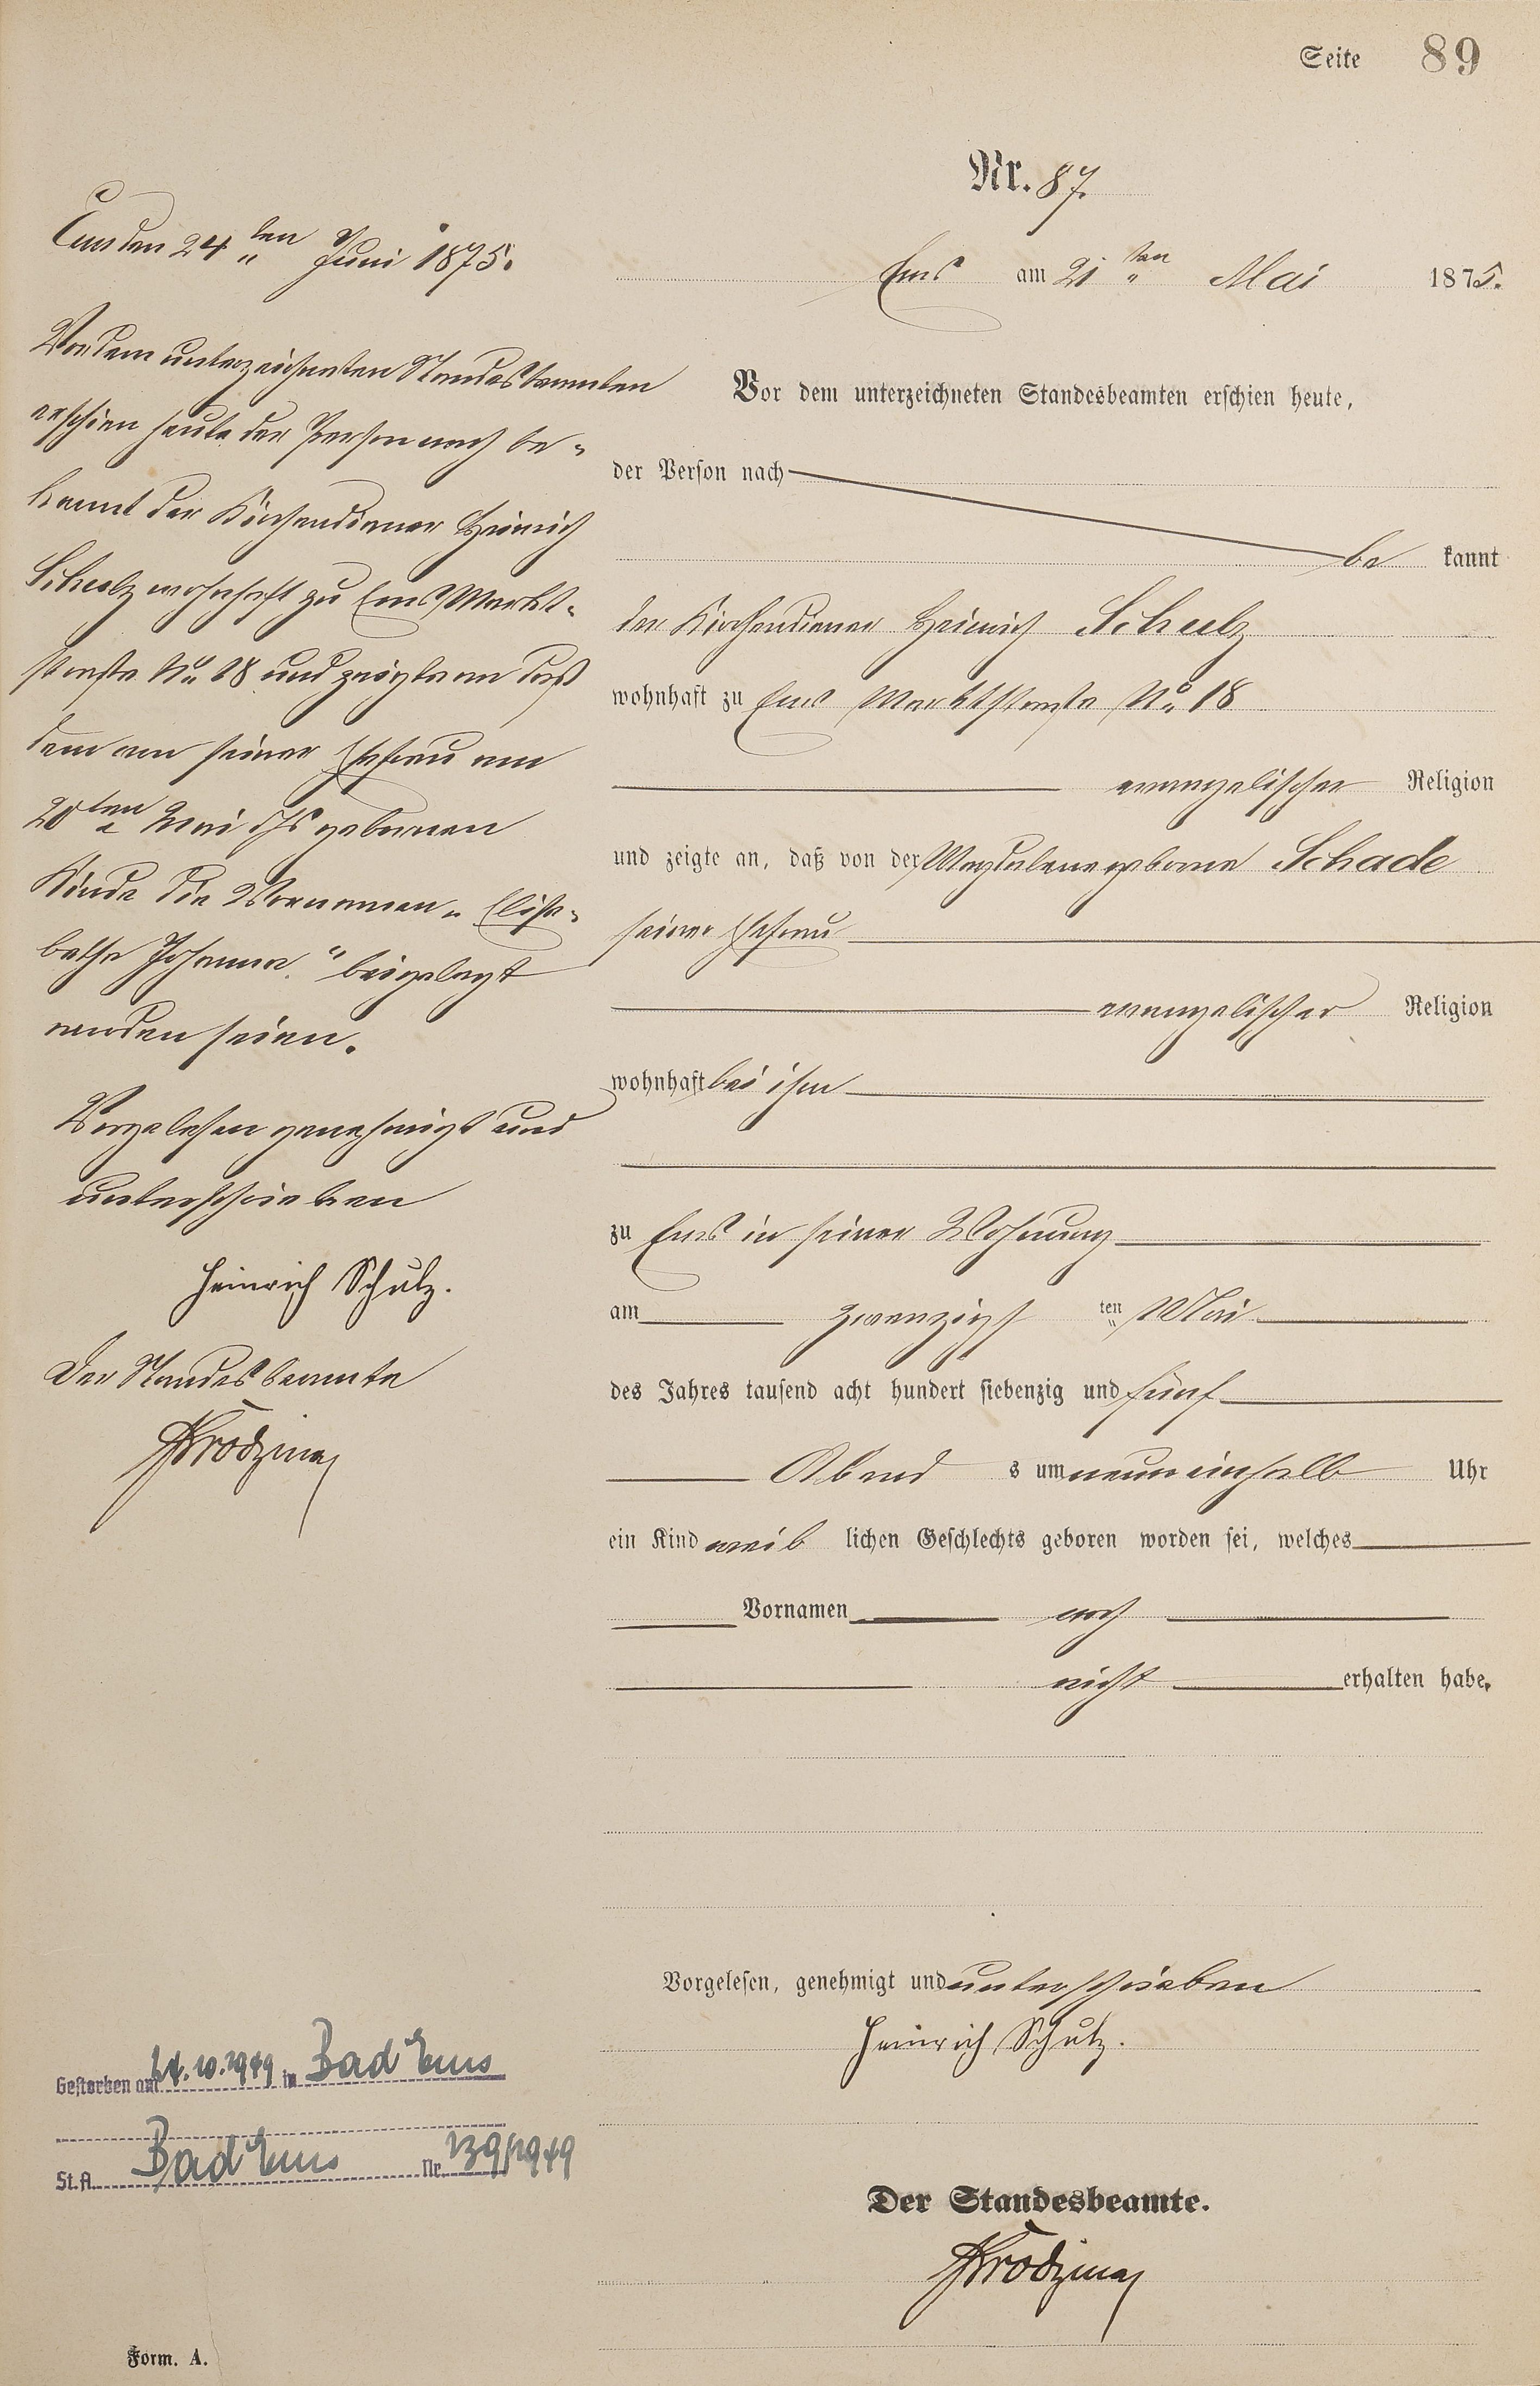 Seite 89
Nr. 87.
Ems am 21ten Mai 1875.
Vor dem unterzeichneten Standesbeamten erschien heute,
der Person nach
be kannt
der Kirchendiener Heinrich Schulz
wohnhaft zu Ems Marktstraße No 18
evangelischer Religion
und zeigte an, daß von der Magdalene geborne Schade
seiner Ehefrau
evangelischer Religion
wohnhaft bei ihm
zu Ems in seiner Wohnung
am zwanzigsten Mai
des Jahres tausend acht hundert siebenzig und fünf
Abend s um neun einhalb Uhr
ein Kind weib lichen Geschlechts geboren worden sei, welches
Vornamen noch
nicht erhalten habe.
Vorgelesen, genehmigt und unterschrieben
Heinrich Schulz.
Der Standesbeamte.
Ems den 24ten Juni 1875.
Vor dem unterzeichneten Standesbeamten
erschien heute der Person nach be-
kannt der Kirchendiener Heinrich
Schulz wohnhaft zu Ems Markt-
straße No 18 und zeigte an daß
dem von seiner Ehefrau am
20ten Mai d Js geborenen
Kinde die Vornamen „Elisa-
betha Johanna" beigelegt
worden seien.
Vorgelesen genehmigt und
unterschrieben
Heinrich Schulz.
Der Standesbeamte
Gestorben am 24.10.1949 in Bad Ems
St.A. Bad Ems Nr. 139/1949
Form. A.